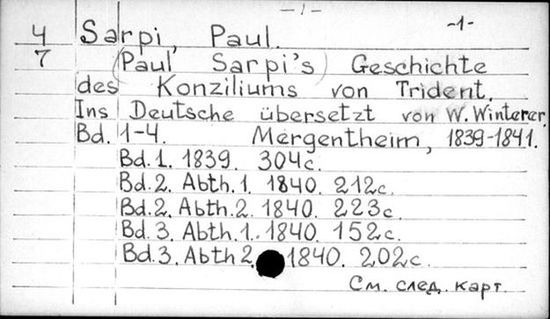 -1-
-1-
4 Sarpi, Paul.
7 (Paul Sarpi's) Geschichte
des Konziliums von Trident.
Ins Deutsche übersetzt von W. Winterer.
Bd. 1-4. Mergentheim, 1839-1841.
Bd. 1. 1839. 304c.
Bd. 2. Abth. 1. 1840. 212c.
Bd. 2. Abth. 2. 1840. 223c.
Bd. 3. Abth. 1. 1840. 152c.
Bd. 3. Abth 2. 1840. 202c.
См. след. карт.